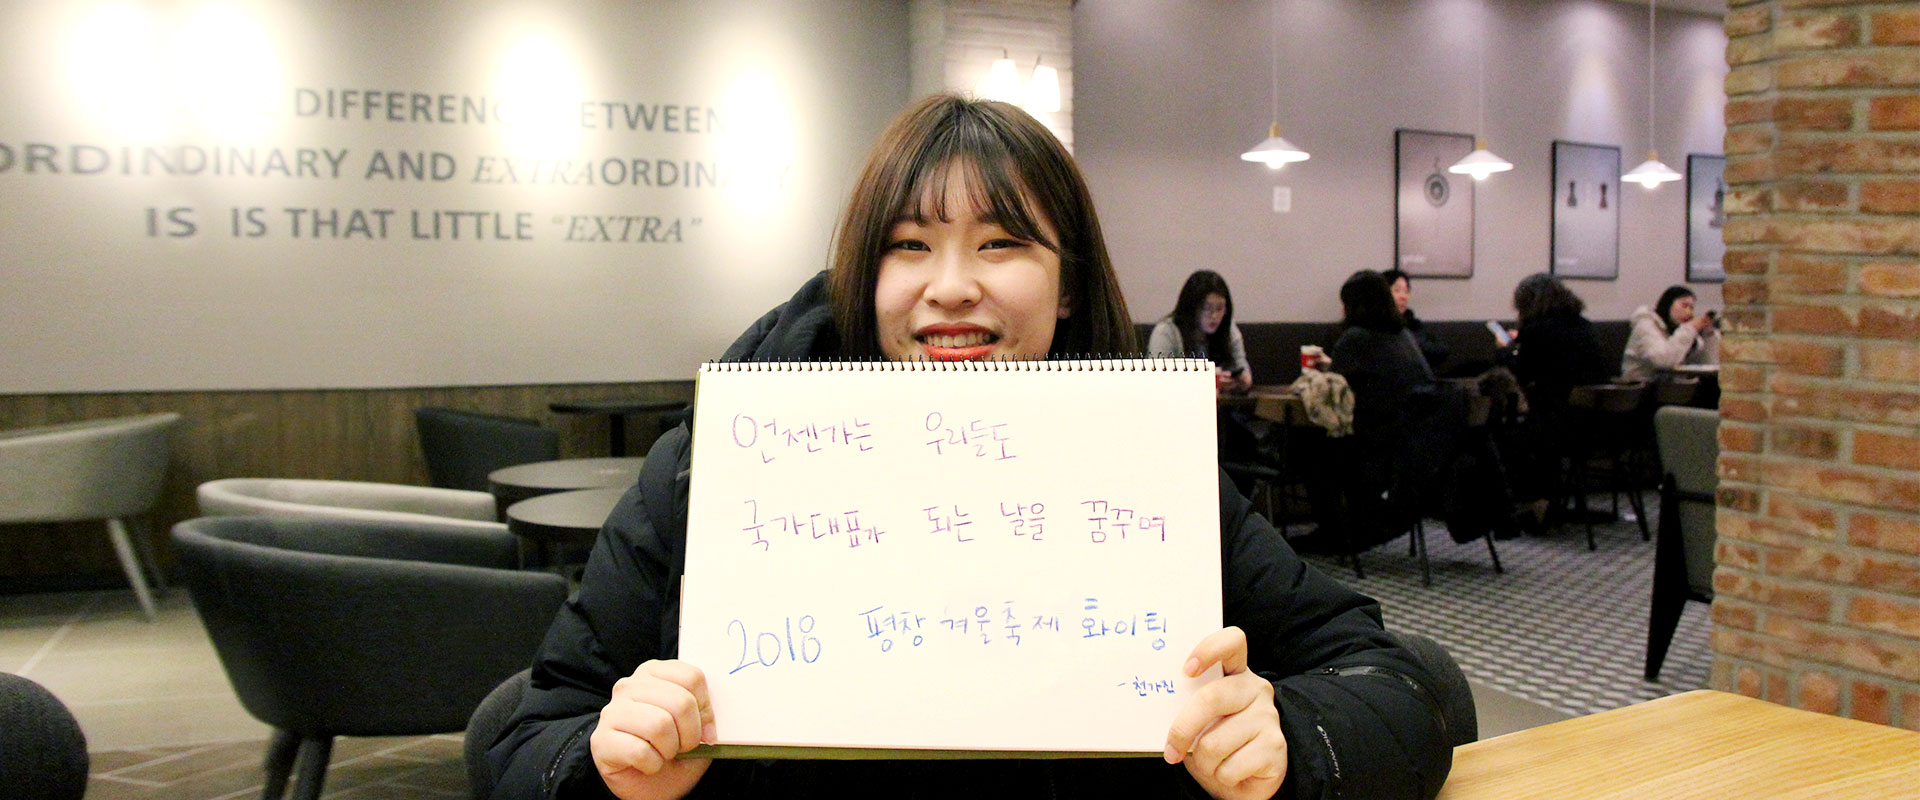 DIFFERENC ETWEEN
ORDINDINARY AND EXTRAORDINARY
IS IS THAT LITTLE "EXTRA"
언젠가는 우리들도
국가대표가 되는 날을 꿈꾸며
2018 평창 겨울축제 화이팅
- 천가진
Discovery